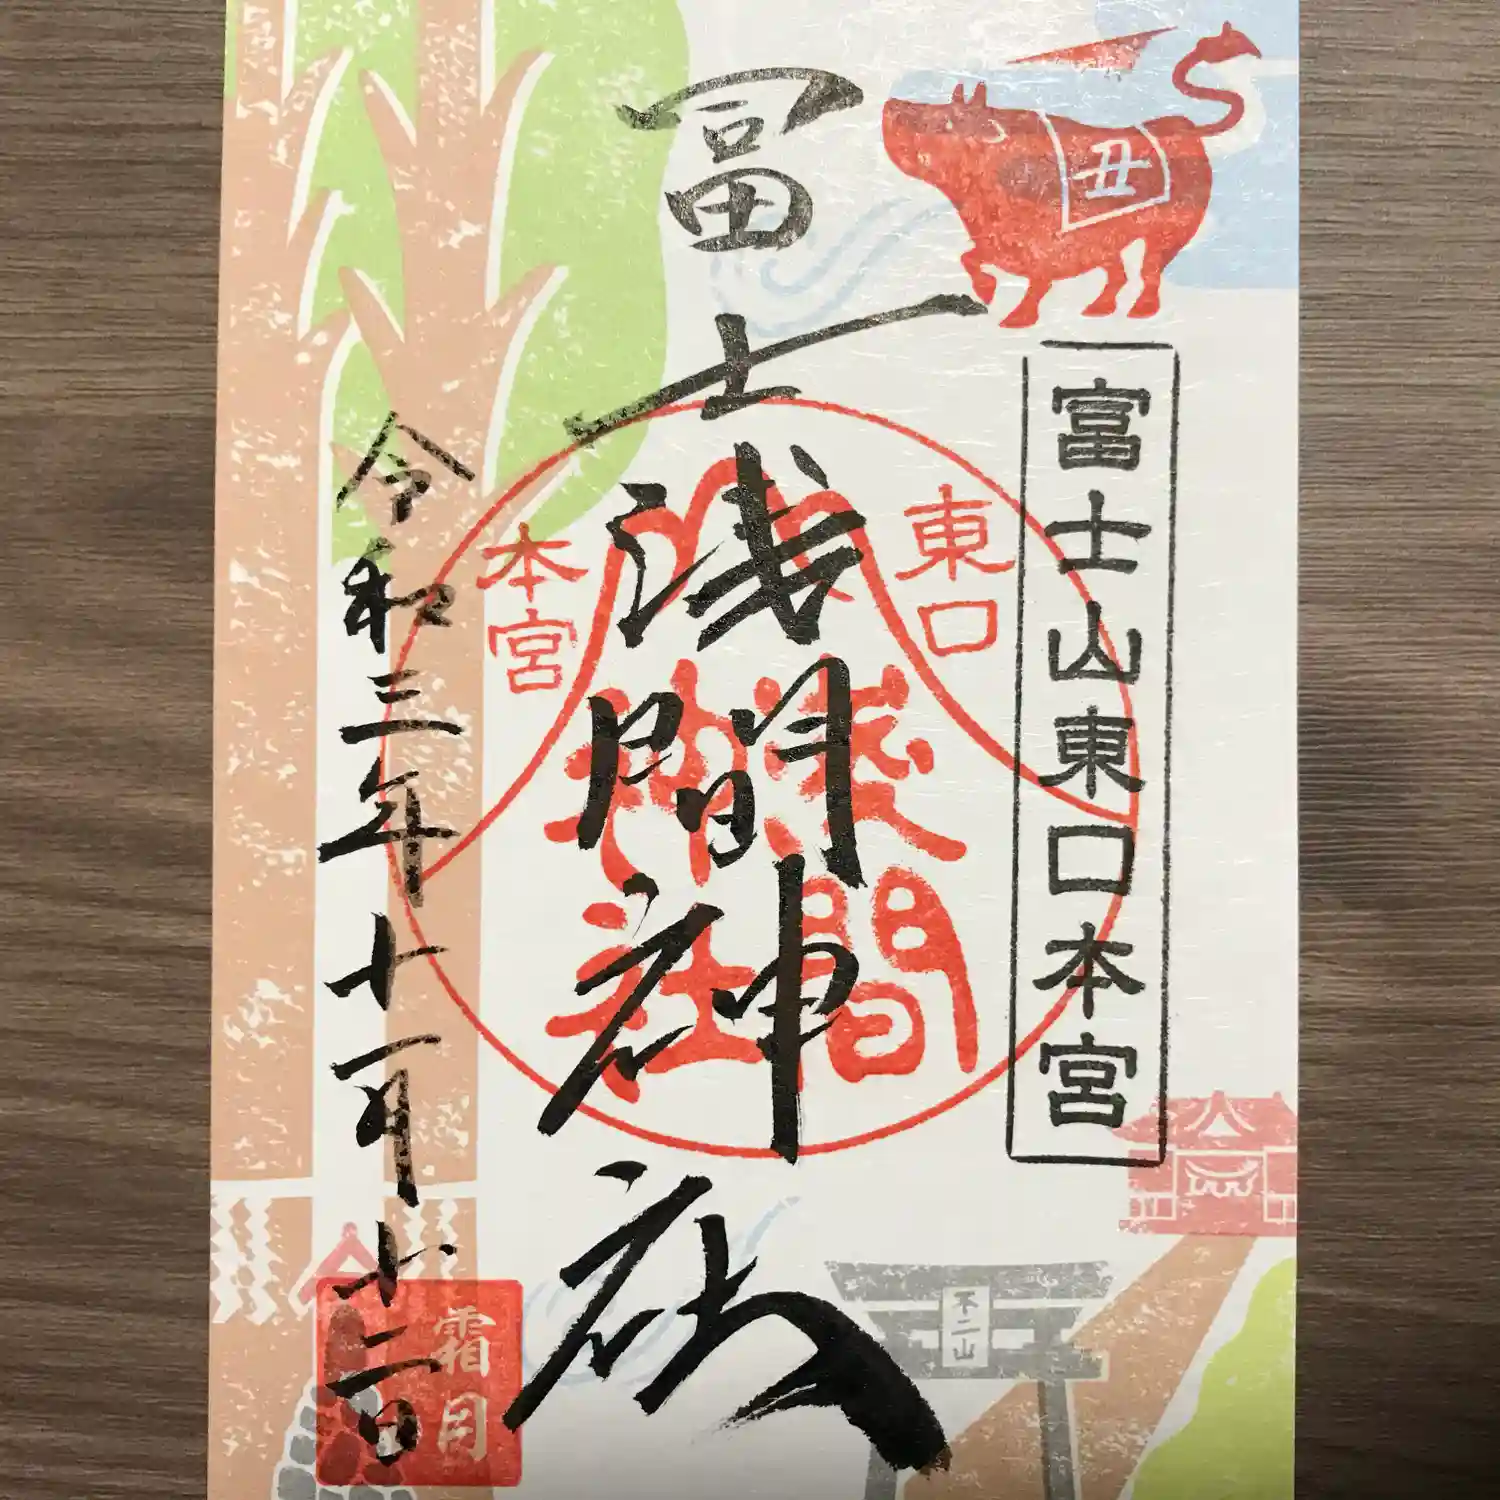 丑
富士山東口本宮
冨士浅間神社
東口
本宮
浅間
神社
不二山
令和三年十一月十二日
霜月